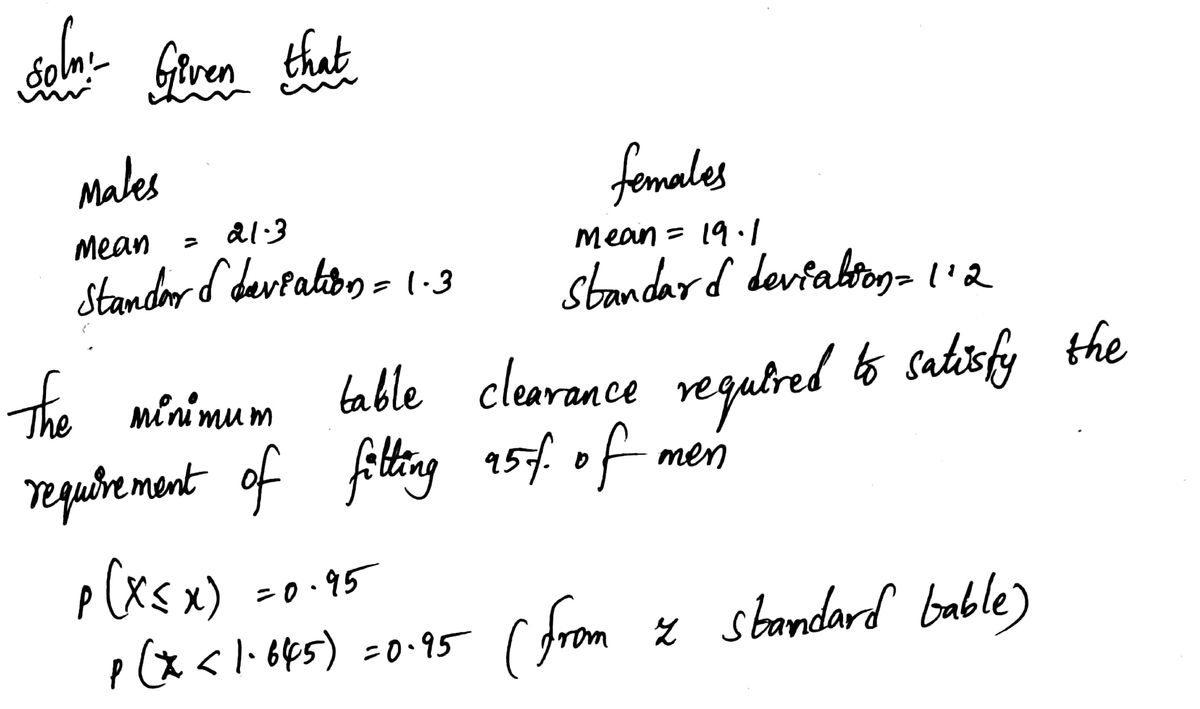 Soln:- Given that
Males
Mean = 21.3
Standard deviation = 1.3
females
mean = 19.1
Standard deviation = 1.2
The minimum table clearance required to satisfy the
requirement of fitting 95% of men
P(X≤x) = 0.95
P(z < 1.645) = 0.95 (from z standard table)